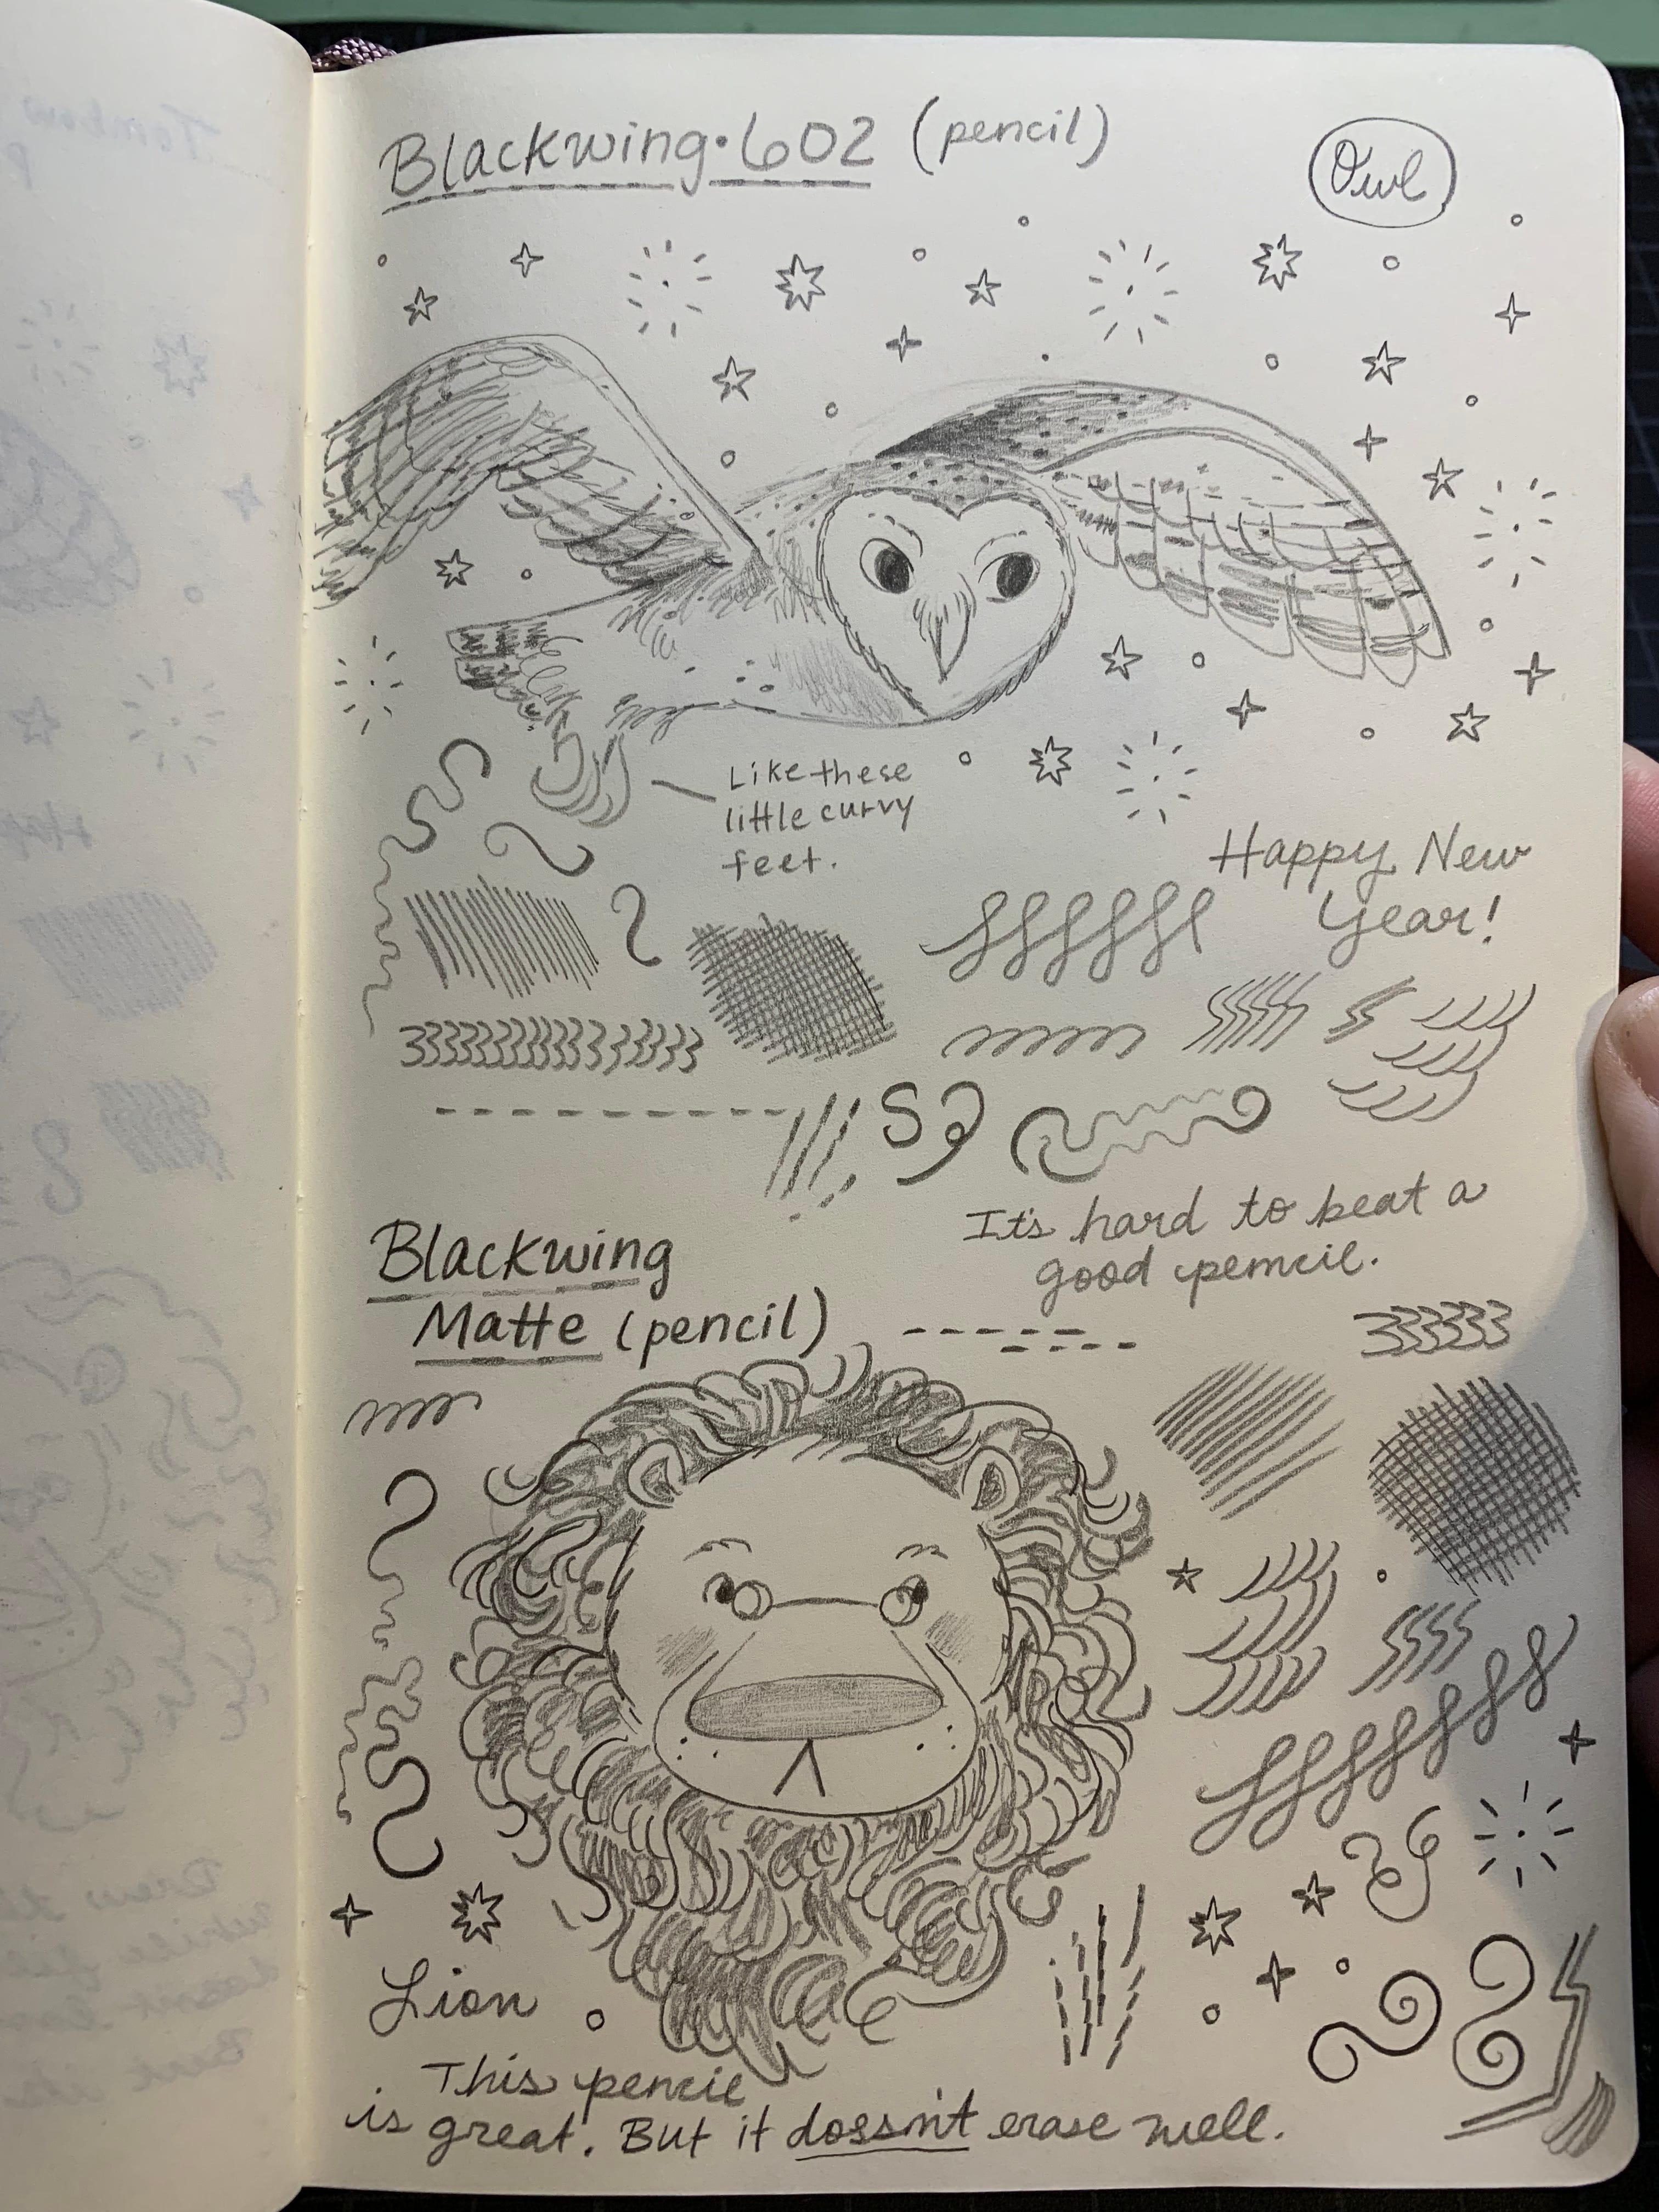 Blackwing·602 (pencil)
Owl
Like these
little curvy
feet.
Happy New
Year!
It's hard to beat a
good pencil.
Blackwing
Matte (pencil)
Lion
This pencil
is great. But it doesn't erase well.